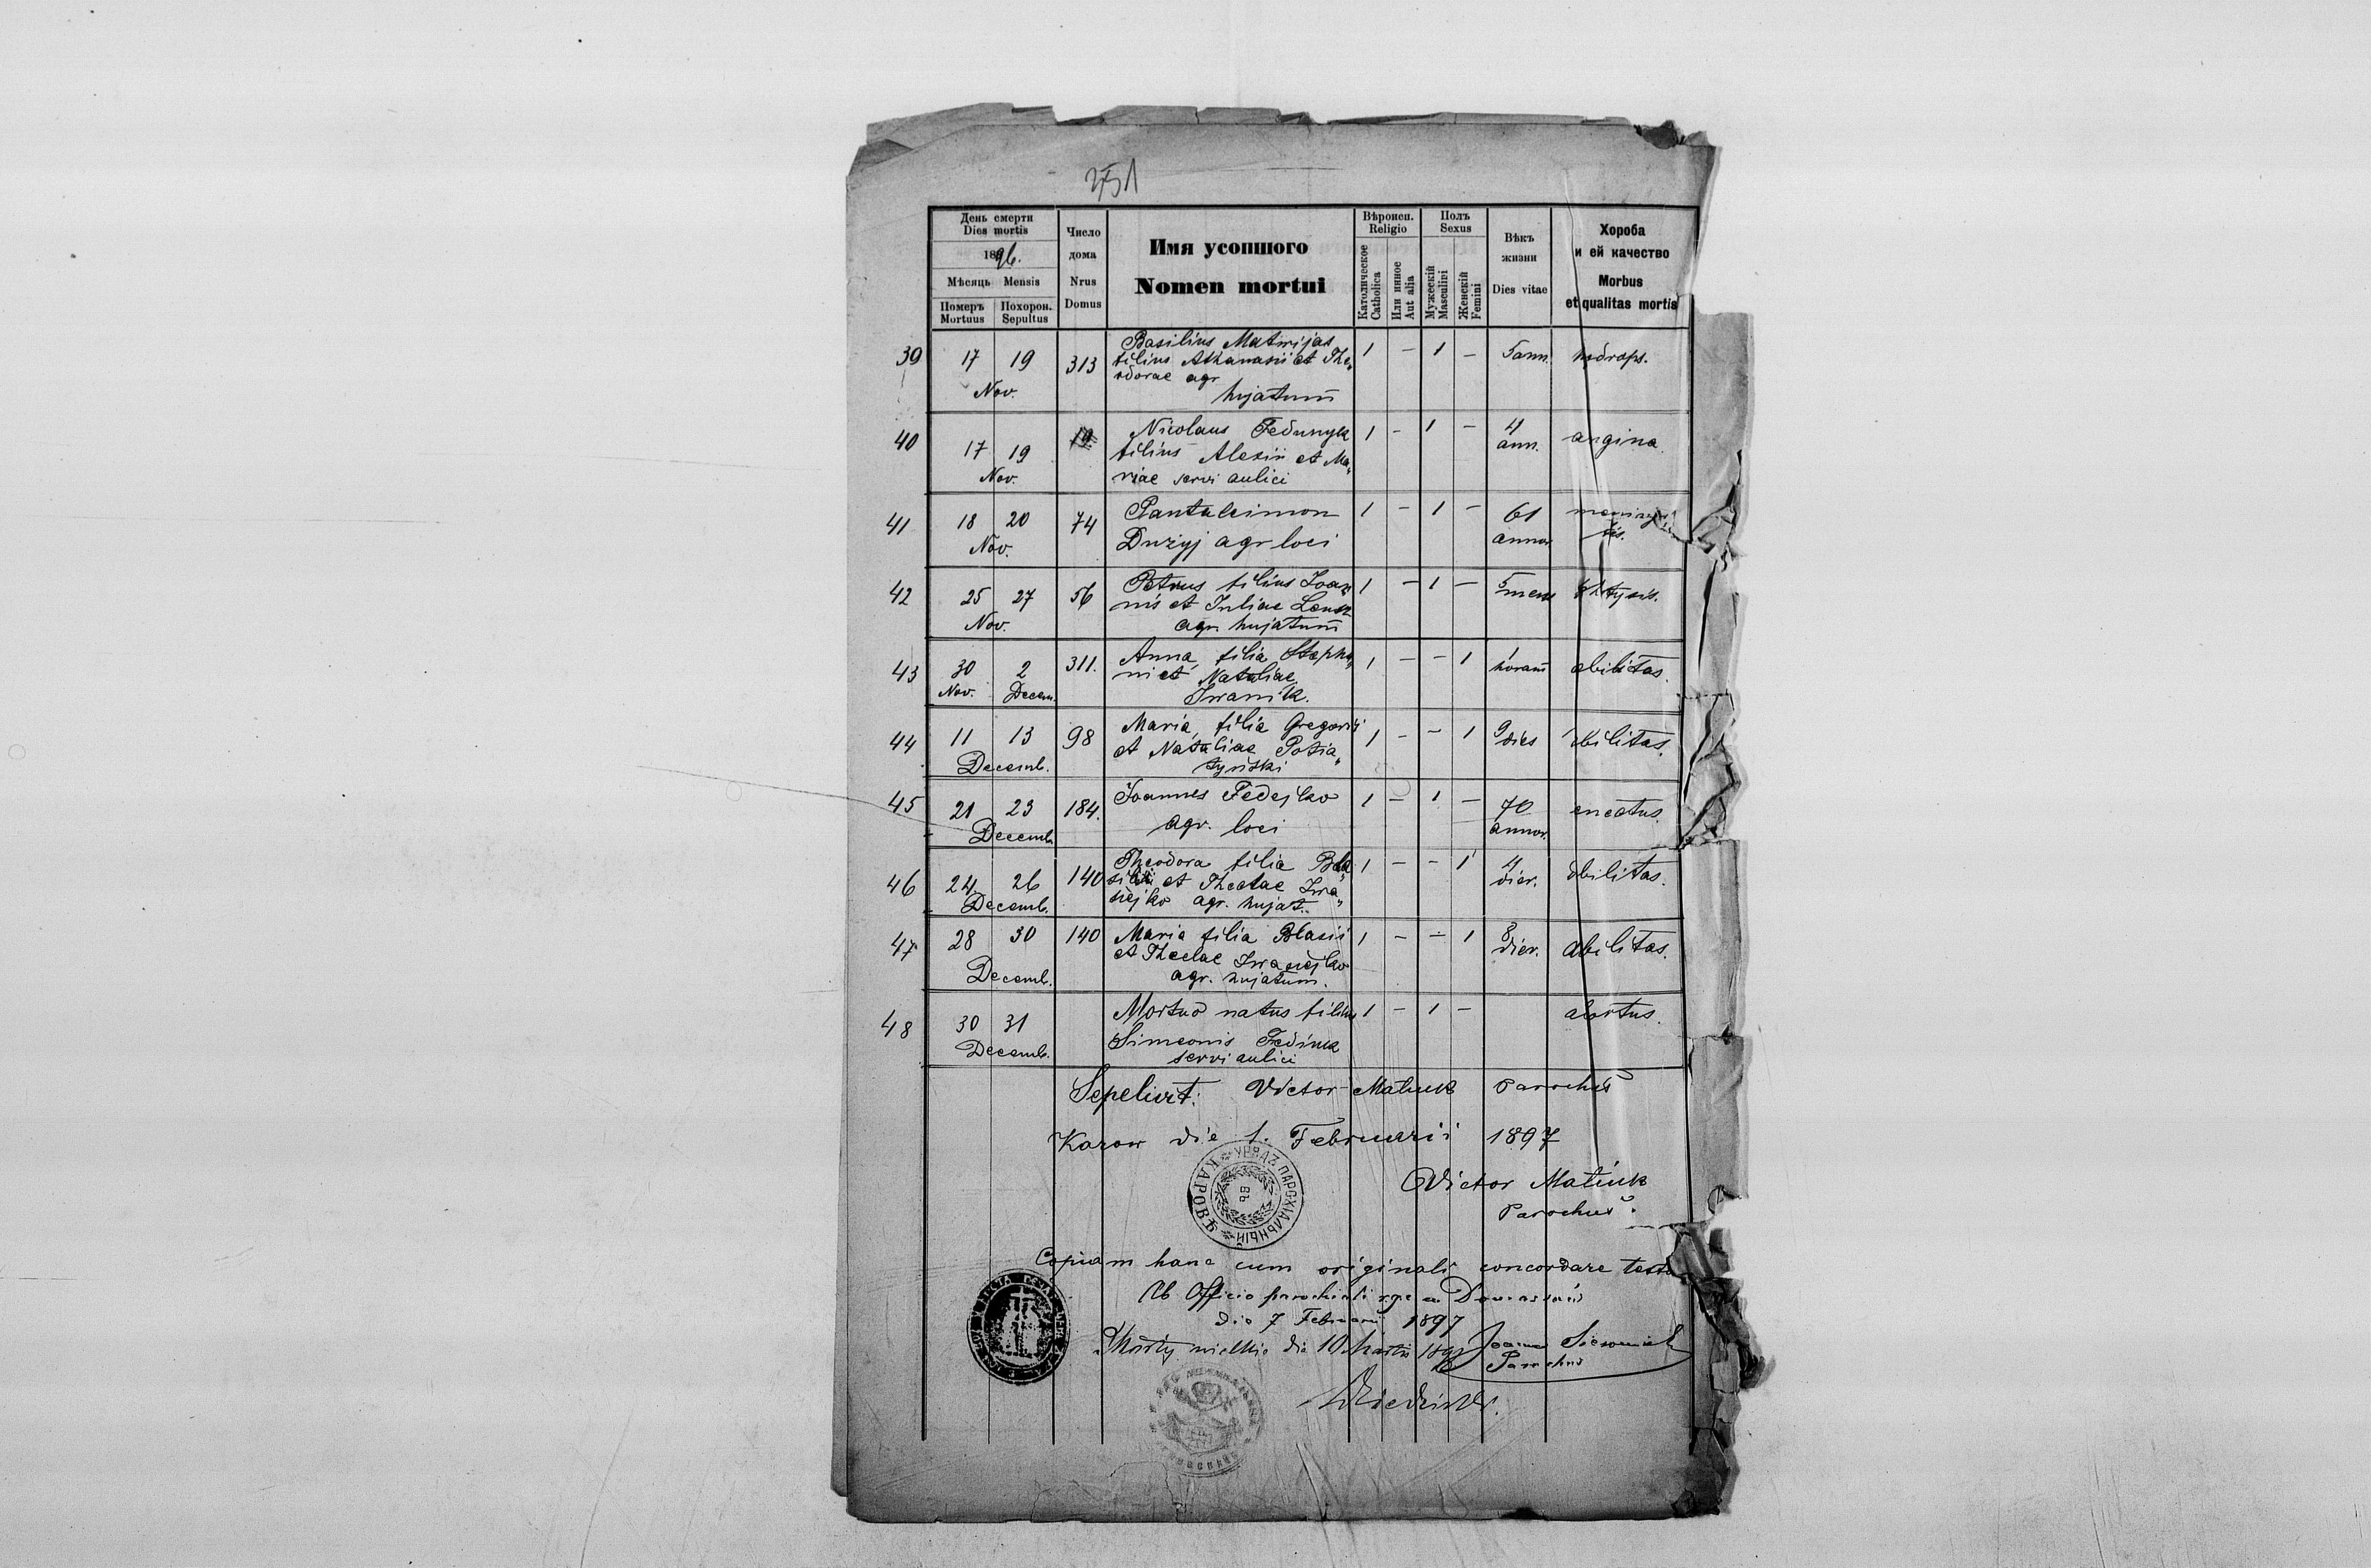 2751
День смерти
Dies mortis
1896.
Мѣсяць Mensis
Померъ Mortuus
Похорон. Sepultus
Число дома
Nrus Domus
Имя усопшого
Nomen mortui
Вѣроисп.
Religio
Католическое Catholica
Или инное Aut alia
Полъ
Sexus
Мужескій Masculini
Женскій Femini
Вѣкъ жизни
Dies vitae
Хороба
и ей качество
Morbus
et qualitas mortis
39 17 19 Nov. 313 1 – 1 – 5 ann. hydrops.
Basilius Matwijas
filius Athanasii et The„
odorae agr
hujatum
40 17 19 Nov. 1 – 1 – 4 ann. angina.
Nicolaus Fedunyk
filius Alexii et Ma„
riae servi aulici
41 18 20 Nov. 74 1 – 1 – 61 annor.
Pantaleimon
Dużyj agr loci
42 25 27 Nov. 56 1 – 1 – 5 mens
Petrus filius Joan„
nis et Juliae
agr. hujatum
43 30 Nov. 2 Decem. 311. 1 – – 1 1 horam debilitas.
Anna, filia Stepha„
ni et Nataliae
Iwanik.
44 11 13 Decemb. 98 1 – – 1 9 dies debilitas.
Maria, filia Gregorii
et Nataliae Potia„
tyński
45 21 23 Decemb. 184. 1 – 1 – 70 annor.
Joannes Fedejko
agr. loci
46 24. 26 Decemb. 140 1 – – 1 4 dier. debilitas.
Theodora filia Bla„
sii et Theclae Iwa„
siejko agr. hujat.
47 28 30 Decemb. 140 1 – – 1 8 dier. debilitas.
Maria filia Blasii
et Theclae Iwasiejko
agr. hujatum.
48 30 31 Decemb. 1 – 1 – abortus.
Mortuo natus filius
Simeonis Fediuk
servi aulici
Sepelivit: Victor Matiuk parochus
Karow die 1. Februarii 1897
УРЯДЪ ПАРОХІАЛЬНЫЙ КАРОВѢ
ВЪ
Victor Matiuk
Parochus.
Copiam hanc cum originali concordare testor
Ab Officio parochiali
die 7 Februarii 1897
die 10 Martii
Parochus